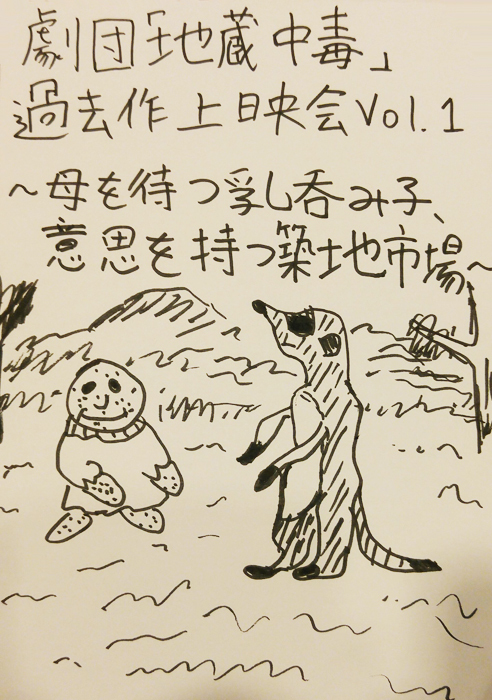 劇団「地蔵中毒」
過去作上映会Vol.1
～母を待つ乳呑み子、
意思を持つ築地市場～